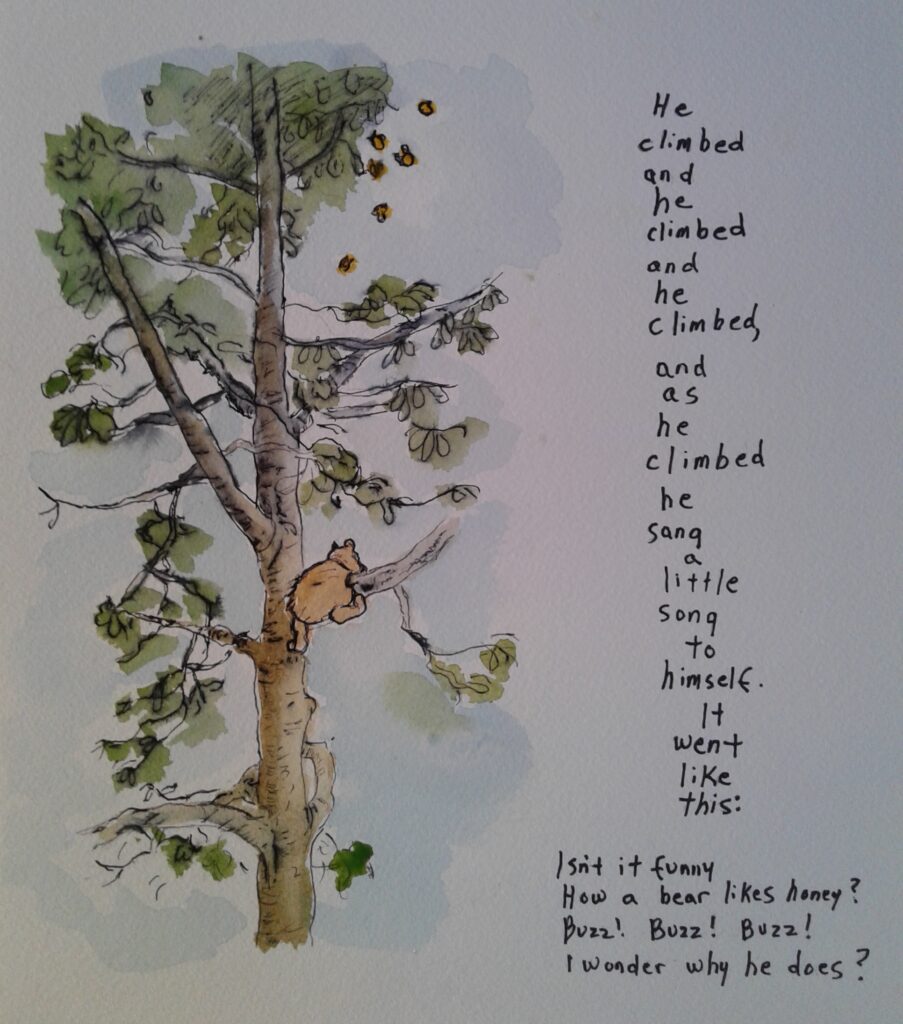 He
climbed
and
he
climbed
and
he
climbed,
and
as
he
climbed
he
sang
a
little
song
to
himself.
It
went
like
this:
Isn't it funny
How a bear likes honey?
Buzz! Buzz! Buzz!
I wonder why he does?